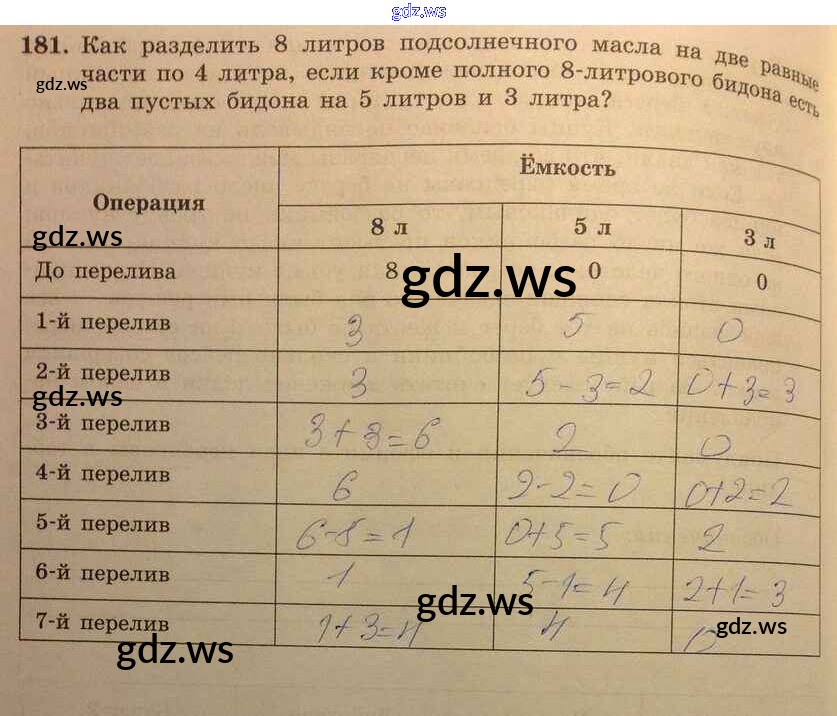 gdz.ws
181. Как разделить 8 литров подсолнечного масла на две равные
части по 4 литра, если кроме полного 8-литрового бидона есть
gdz.ws
два пустых бидона на 5 литров и 3 литра?
Операция
Ёмкость
8 л 5 л 3 л
gdz.ws
До перелива 8 0 0
gdz.ws
1-й перелив 3 5 0
2-й перелив 3 5-3=2 0+3=3
gdz.ws
3-й перелив 3+3=6 2 0
4-й перелив 6 2-2=0 0+2=2
5-й перелив 6-5=1 0+5=5 2
6-й перелив 1 5-1=4 2+1=3
gdz.ws
7-й перелив 1+3=4 4 0
gdz.ws
gdz.ws